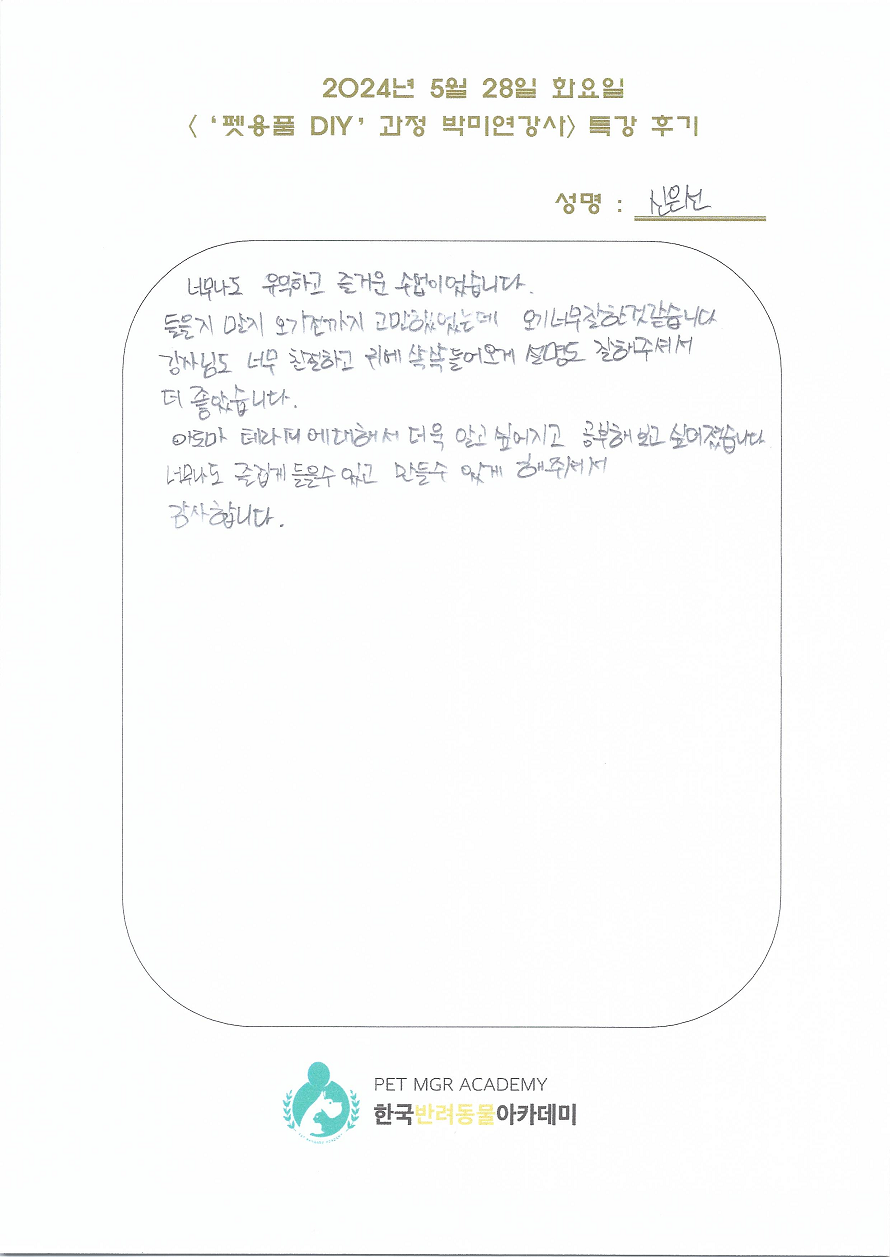 2024년 5월 28일 화요일
< '펫용품 DIY' 과정 박미연강사> 특강 후기
성명 : 신은선
너무나도 유익하고 즐거운 수업이었습니다.
들을지 말지 오기전까지 고민했었는데 오기너무잘한것같습니다
강사님도 너무 친절하고 귀에 쏙쏙들어오게 설명도 잘해주셔서
더 좋았습니다.
아로마 테라피에대해서 더욱 알고 싶어지고 공부해 보고 싶어졌습니다
너무나도 즐겁게 들을수 있고 만들수 있게 해주셔서
감사합니다.
PET MGR ACADEMY
한국반려동물아카데미